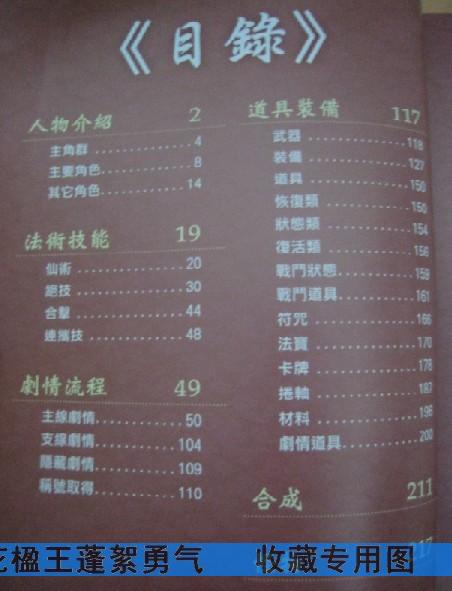 《目錄》
人物介紹 2
主角群 4
主要角色 8
其它角色 14
法術技能 19
仙術 20
絕技 30
合擊 44
連攜技 48
劇情流程 49
主線劇情 50
支線劇情 104
隱藏劇情 109
稱號取得 110
道具裝備 117
武器 118
裝備 127
道具 150
恢復類 150
狀態類 154
復活類 156
戰鬥狀態 159
戰鬥道具 161
符咒 166
法寶 170
卡牌 178
捲軸 187
材料 196
劇情道具 200
合成 211
217
楹王蓬絮勇气 收藏专用图